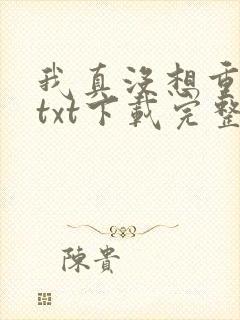 我真没想重
txt下載完整
陳貴